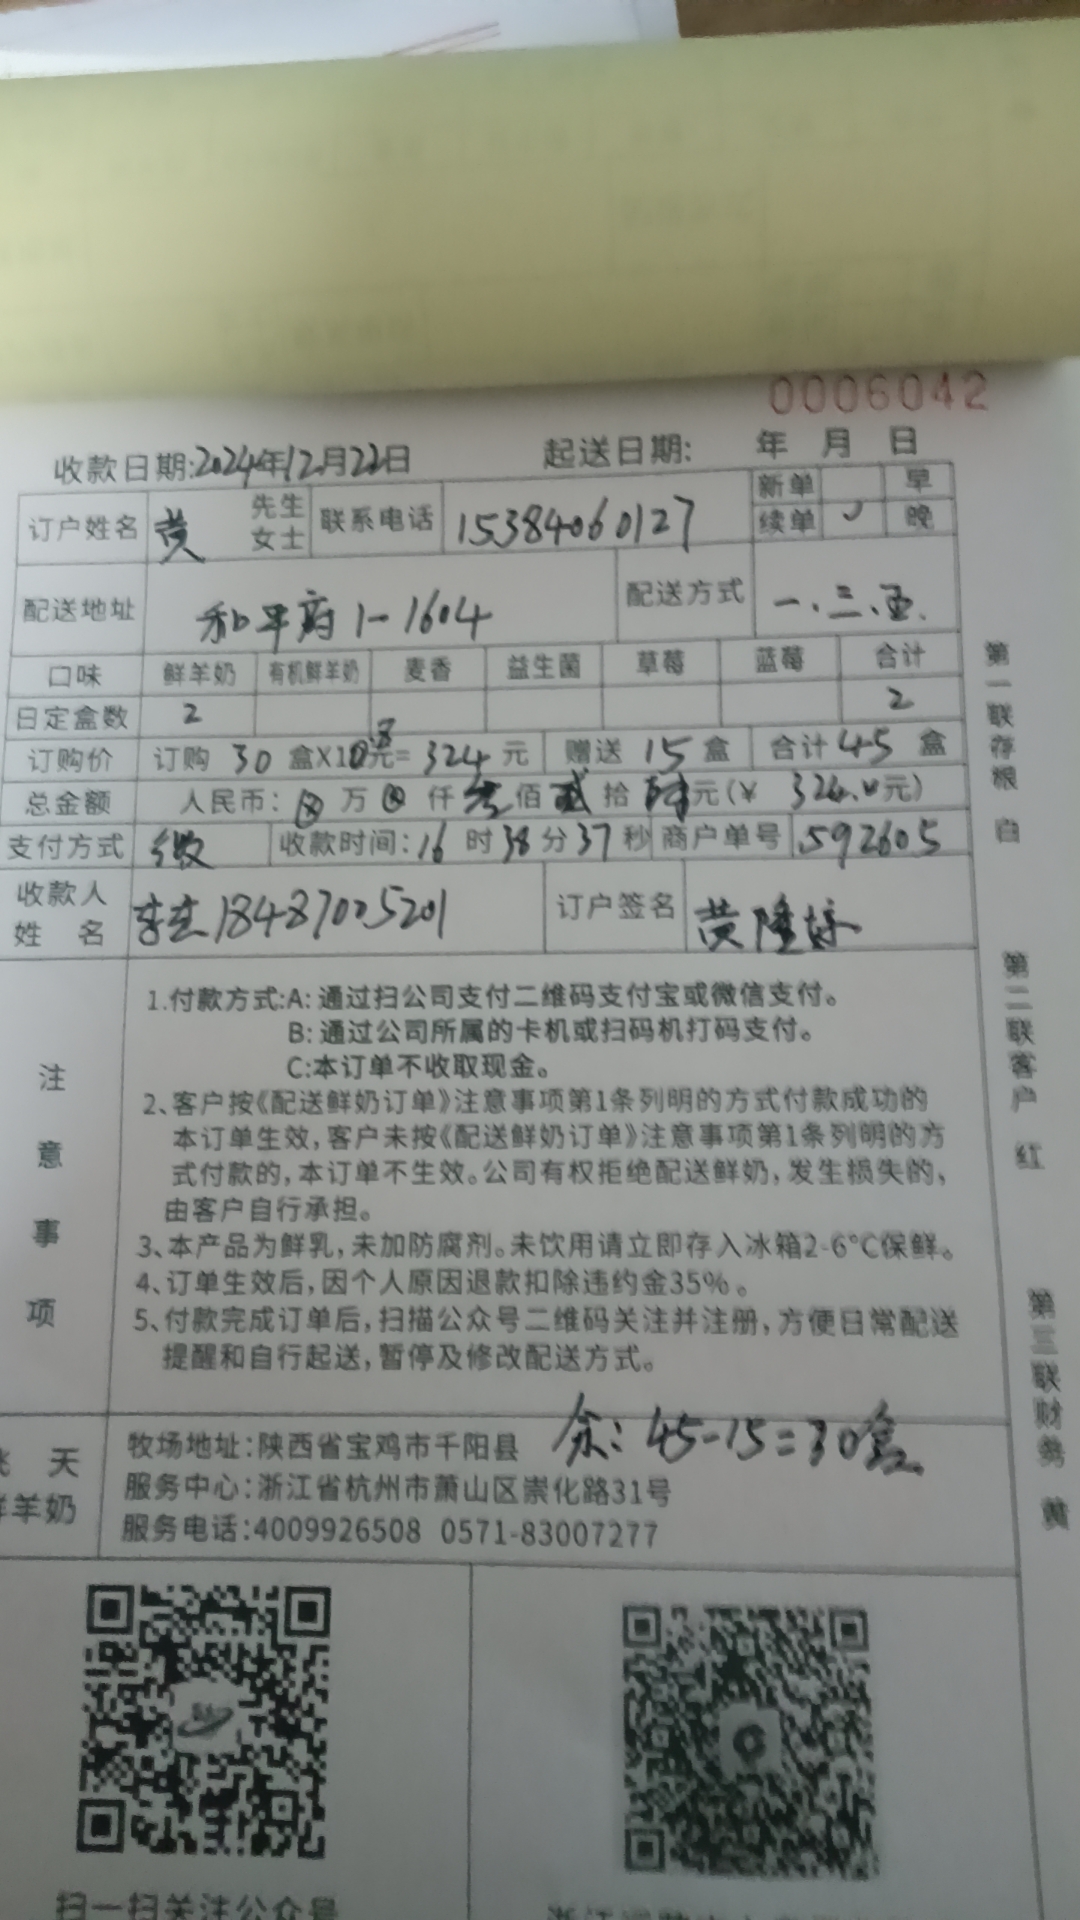 0006042
收款日期:2024年12月22日 起送日期: 年 月 日
订户姓名 黄 先生 女士 联系电话 15384060127 新单 早
续单 ✓ 晚
配送地址 和平府1-1604 配送方式 一.三.五.
口味 鲜羊奶 有机鲜羊奶 麦香 益生菌 草莓 蓝莓 合计
日定盒数 2 2
订购价 订购 30 盒X10.8元= 324 元 赠送 15 盒 合计 45 盒
总金额 人民币: 万 仟 叁佰 贰拾 肆元(¥ 324.0元)
支付方式 微 收款时间:16时38分37秒 商户单号 592605
收款人
姓 名 18487005201 订户签名 黄隆婷
注意事项
1.付款方式:A: 通过扫公司支付二维码支付宝或微信支付。
B: 通过公司所属的卡机或扫码机打码支付。
C:本订单不收取现金。
2、客户按《配送鲜奶订单》注意事项第1条列明的方式付款成功的
本订单生效,客户未按《配送鲜奶订单》注意事项第1条列明的方
式付款的,本订单不生效。公司有权拒绝配送鲜奶,发生损失的,
由客户自行承担。
3、本产品为鲜乳,未加防腐剂。未饮用请立即存入冰箱2-6°C保鲜。
4、订单生效后,因个人原因退款扣除违约金35%。
5、付款完成订单后,扫描公众号二维码关注并注册,方便日常配送
提醒和自行起送,暂停及修改配送方式。
余: 45-15=30盒
天
羊奶
牧场地址:陕西省宝鸡市千阳县
服务中心:浙江省杭州市萧山区崇化路31号
服务电话:4009926508 0571-83007277
扫一扫关注公众号
第一联存根 白
第二联客户 红
第三联财务 黄